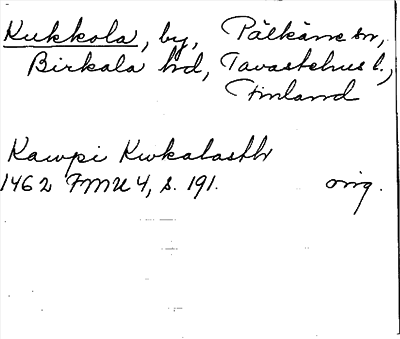 Kukkola, by, Pälkäne sn,
Birkala hd, Tavastehus l.,
Finland
Kawpi Kwkalasth
1462 FMU 4, s. 191. orig.